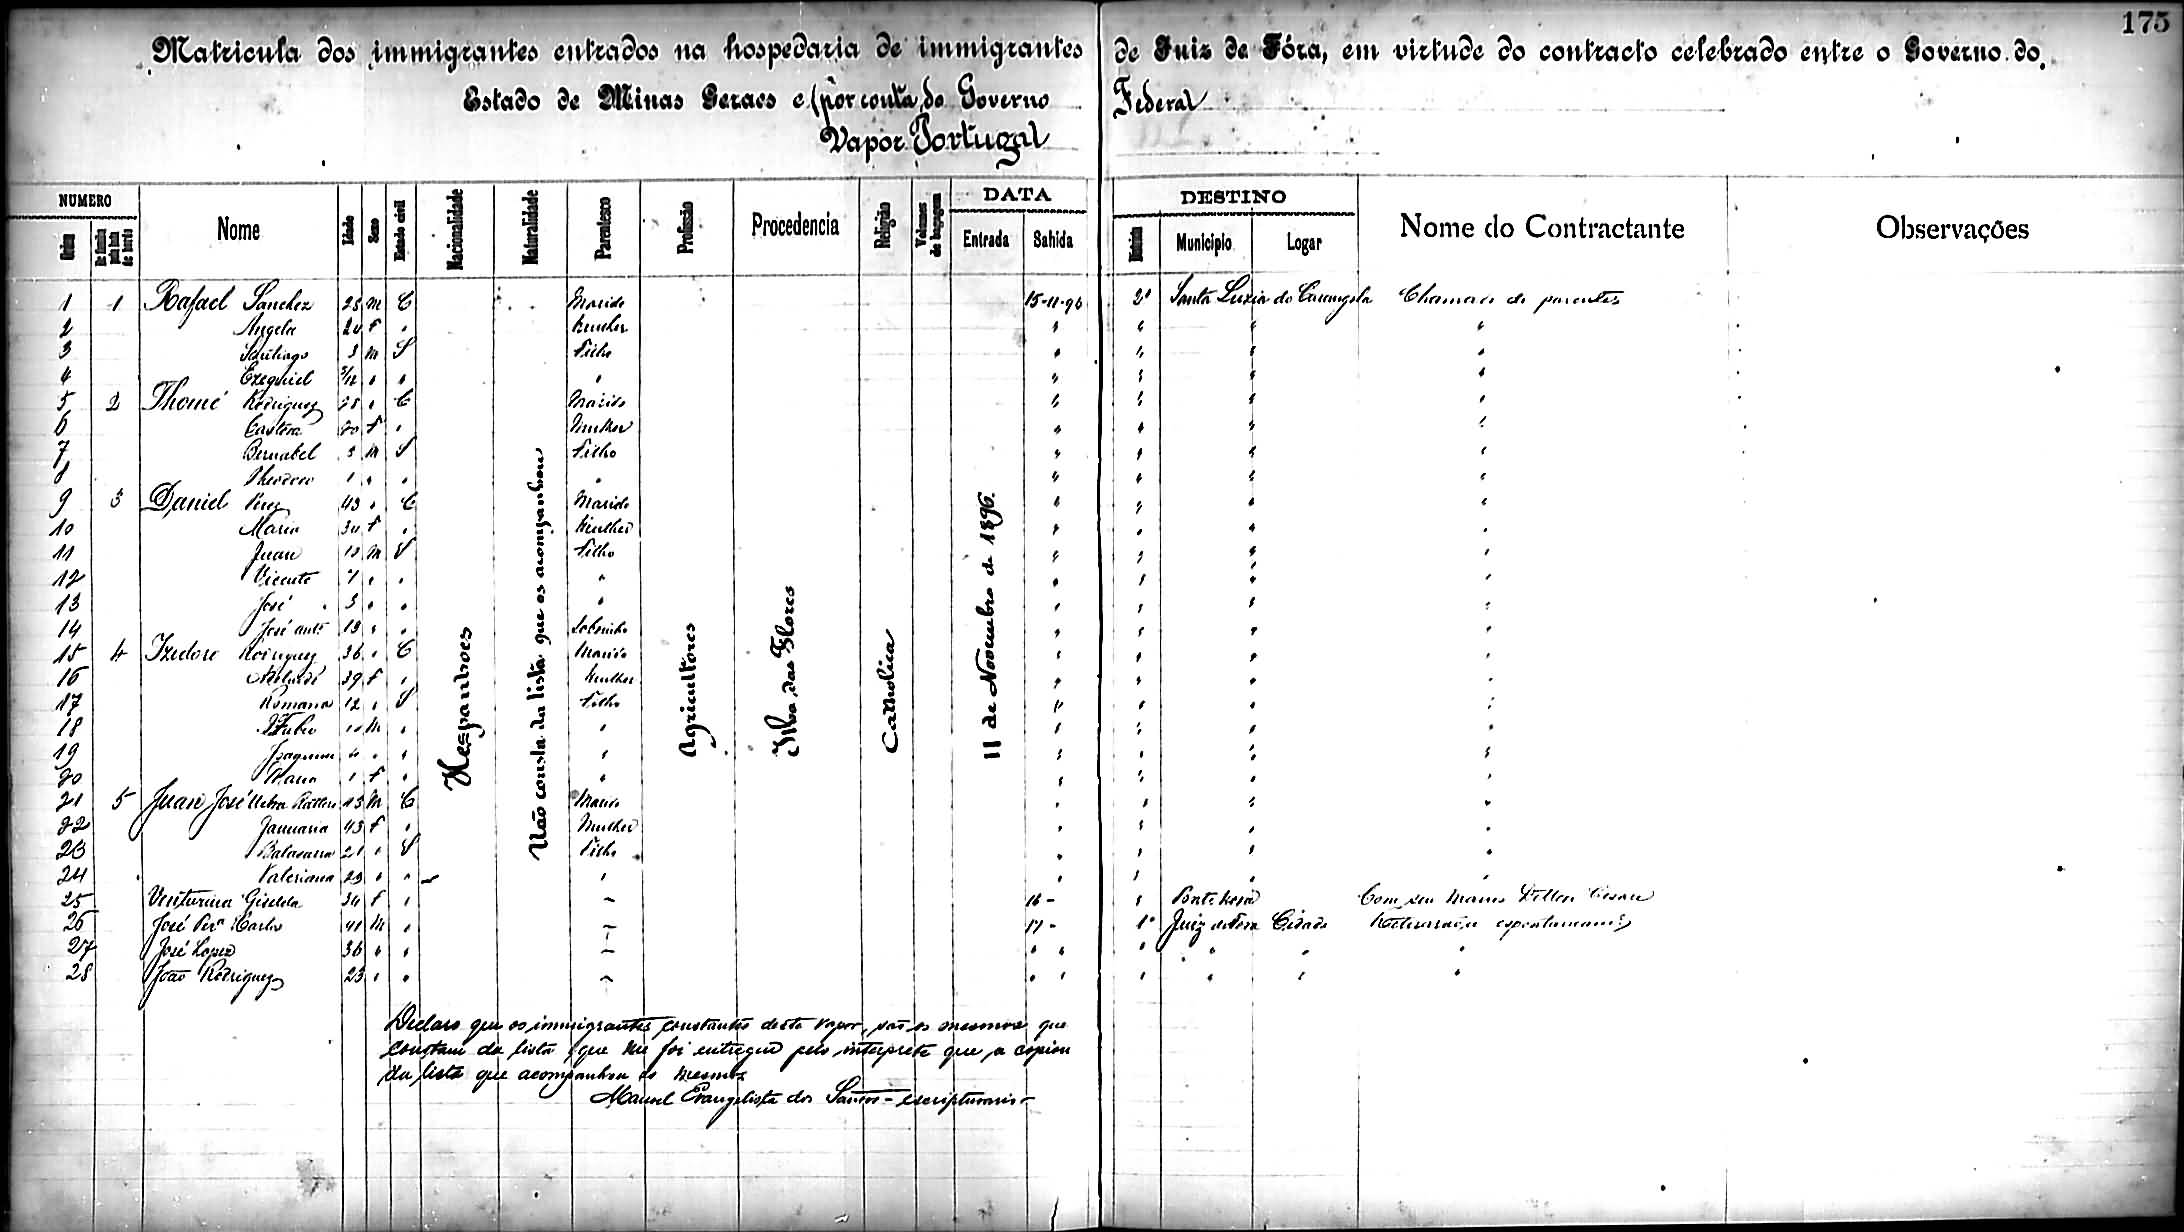 175
Matricula dos immigrantes entrados na hospedaria de immigrantes de Juiz de Fóra, em virtude do contracto celebrado entre o Governo do
Estado de Minas Geraes e (por conta do Governo Federal
Vapor Portugal
NUMERO Nome Idade Sexo Estado civil Nacionalidade Naturalidade Parentesco Profissão Procedencia Religião Volumes de bagagem DATA DESTINO Nome do Contractante Observações
Ordem Entrada Sahida Districto Municipio Logar
Hespanhoes
Não consta da lista que os acompanhou
Agricultores
Ilha das Flores
Catholica
11 de Novembro de 1896.
1 1 Rafael Sanchez 25 M C Marido 15-11-96 2º Santa Luzia do Carangola Chamado de parentes
2 Angela 20 f " Mulher " " " "
3 Santiago 3 M S Filho " " " "
4 Ezequiel " " " " " " "
5 2 Thomé Rodriguez " C Marido " " " "
6 f " Mulher " " " "
7 Bernabel 3 M S Filho " " " "
8 Theodoro 1 " " " " " " "
9 3 Daniel Perez 43 " C Marido " " " "
10 Maria 30 f " Mulher " " " "
11 Juan M S Filho " " " "
12 Vicente 7 " " " " " " "
13 José 3 " " " " " " "
14 José antº 13 " " Sobrinho " " " "
15 4 Izidoro Rodriguez 36 " C Marido " " " "
16 39 f " Mulher " " " "
17 Romana 12 " S Filho " " " "
18 M " " " " " "
19 Joaquim " " " " " " "
20 Maria 1 f " " " " " "
21 5 Juan José M C Marido " " " "
22 Januaria 43 f " Mulher " " " "
23 21 " S Filho " " " "
24 Valeriana 23 " " " " " " "
25 Venturina Giselda 34 f " 16 - " Ponte Nova Com seu
26 José Perª Carlos 41 M " 17 - 1º Juiz de Fora Cidade
27 José Lopes 36 " " " " " " " "
28 João Rodriguez 23 " " " " " " " "
Declaro que os immigrantes constantes deste vapor, são os mesmos que
constam da lista que me foi entregue pelo interprete que a copiou
da lista que acompanhou os mesmos
Manoel Evangelista dos Santos - escripturario -